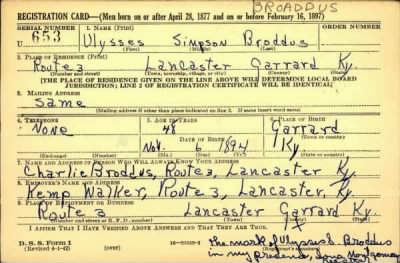 BROADDUS
REGISTRATION CARD—(Men born on or after April 28, 1877 and on or before February 16, 1897)
SERIAL NUMBER 1. NAME (Print) ORDER NUMBER
U 653 Ulysses Simpson Broddus
(First) (Middle) (Last)
2. PLACE OF RESIDENCE (Print)
Route 2 Lancaster Garrard Ky.
(Number and street) (Town, township, village, or city) (County) (State)
[THE PLACE OF RESIDENCE GIVEN ON THE LINE ABOVE WILL DETERMINE LOCAL BOARD
JURISDICTION; LINE 2 OF REGISTRATION CERTIFICATE WILL BE IDENTICAL]
3. MAILING ADDRESS
Same
(Mailing address if other than place indicated on line 2. If same insert word same)
4. TELEPHONE 5. AGE IN YEARS 6. PLACE OF BIRTH
None 48 Garrard
DATE OF BIRTH (Town or county)
Nov. 6 1894 Ky
(Exchange) (Number) (Mo.) (Day) (Yr.) (State or country)
7. NAME AND ADDRESS OF PERSON WHO WILL ALWAYS KNOW YOUR ADDRESS
Charlie Broddus, Route 2, Lancaster Ky
8. EMPLOYER'S NAME AND ADDRESS
Kemp Walker, Route 3, Lancaster, Ky.
9. PLACE OF EMPLOYMENT OR BUSINESS
Route 2 Lancaster Garrard Ky.
(Number and street or R. F. D. number) (Town) (County) (State)
I AFFIRM THAT I HAVE VERIFIED ABOVE ANSWERS AND THAT THEY ARE TRUE.
D. S. S. Form 1 The mark of Ulysses S. Broddus
(Revised 4-1-42) (over) in my presence, Montgomery